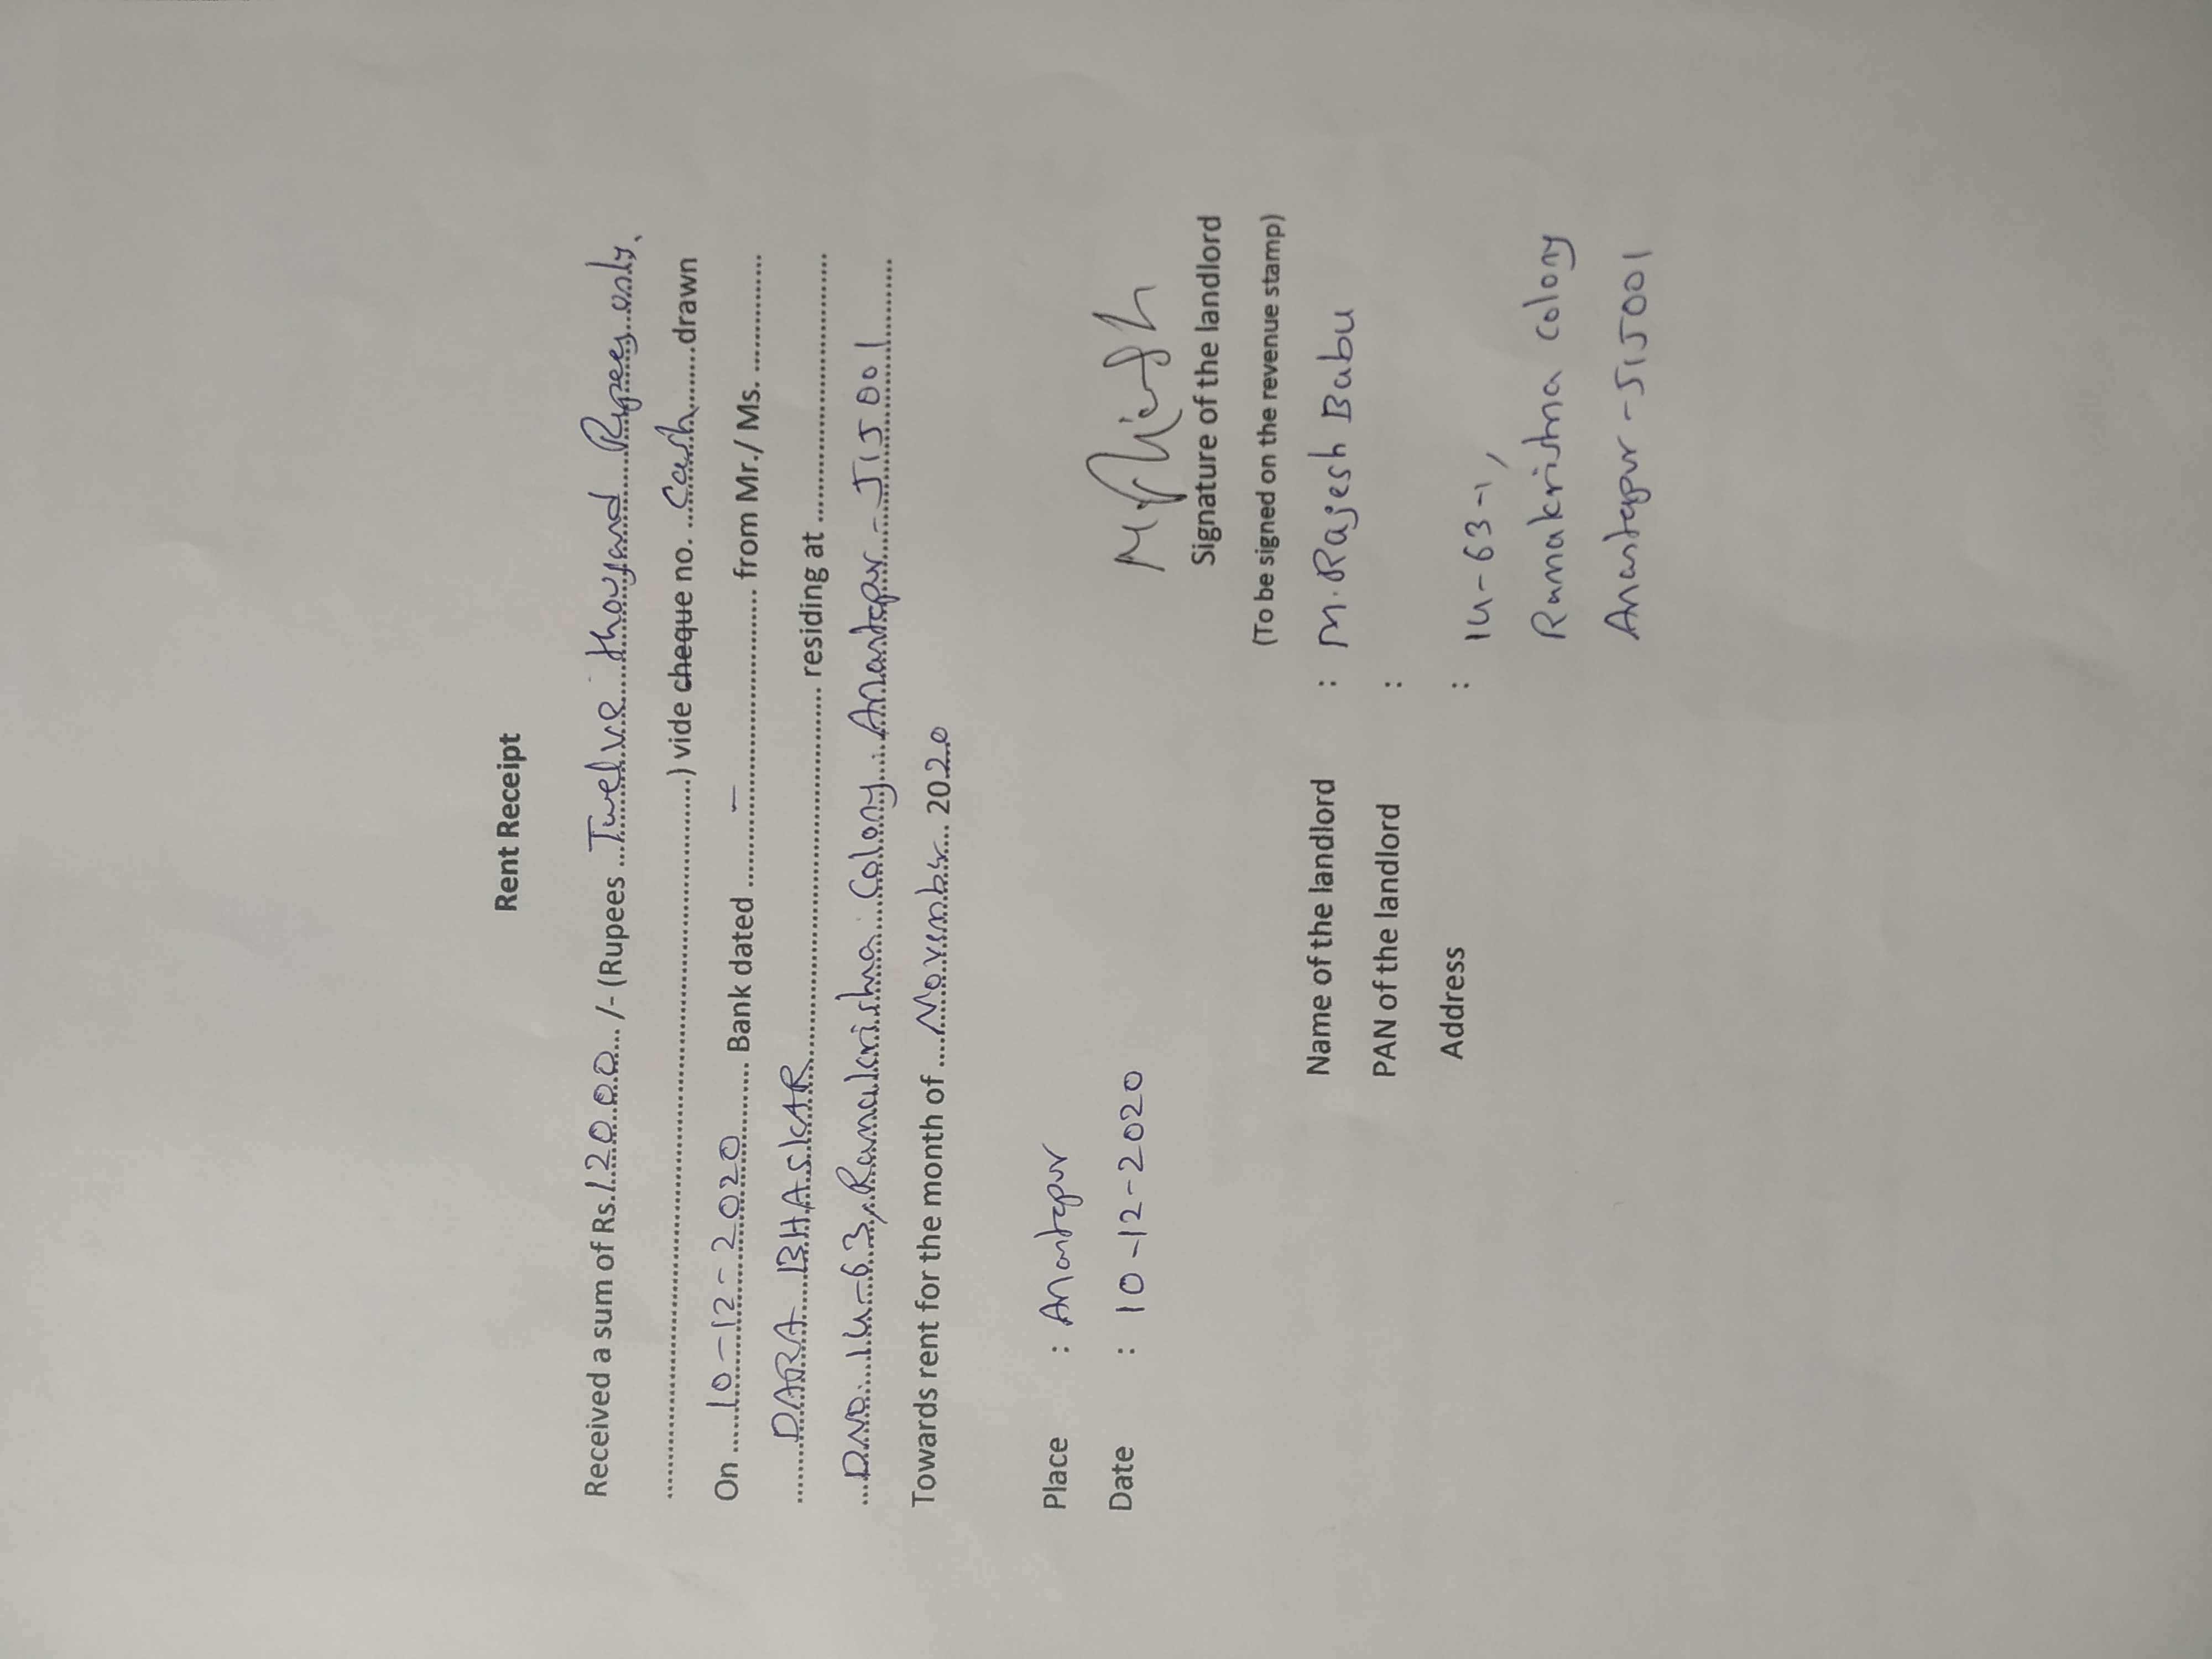 Rent Receipt
Received a sum of Rs.12000... /- (Rupees ...Twelve thousand Rupees only.
..........) vide cheque no. ...Cash.......drawn
On ......10-12-2020.......... Bank dated .......–.......... from Mr./ Ms. ..........
......DARA BHASKAR.......... residing at ..........
...DNO. 14-63, Ramakrishna Colony. Anantapur - 515001..........
Towards rent for the month of ....November.... 2020
Place : Anantapur
Date : 10-12-2020
Signature of the landlord
(To be signed on the revenue stamp)
Name of the landlord : M. Rajesh Babu
PAN of the landlord :
Address :
14-63-1,
Ramakrishna Colony
Anantapur - 515001